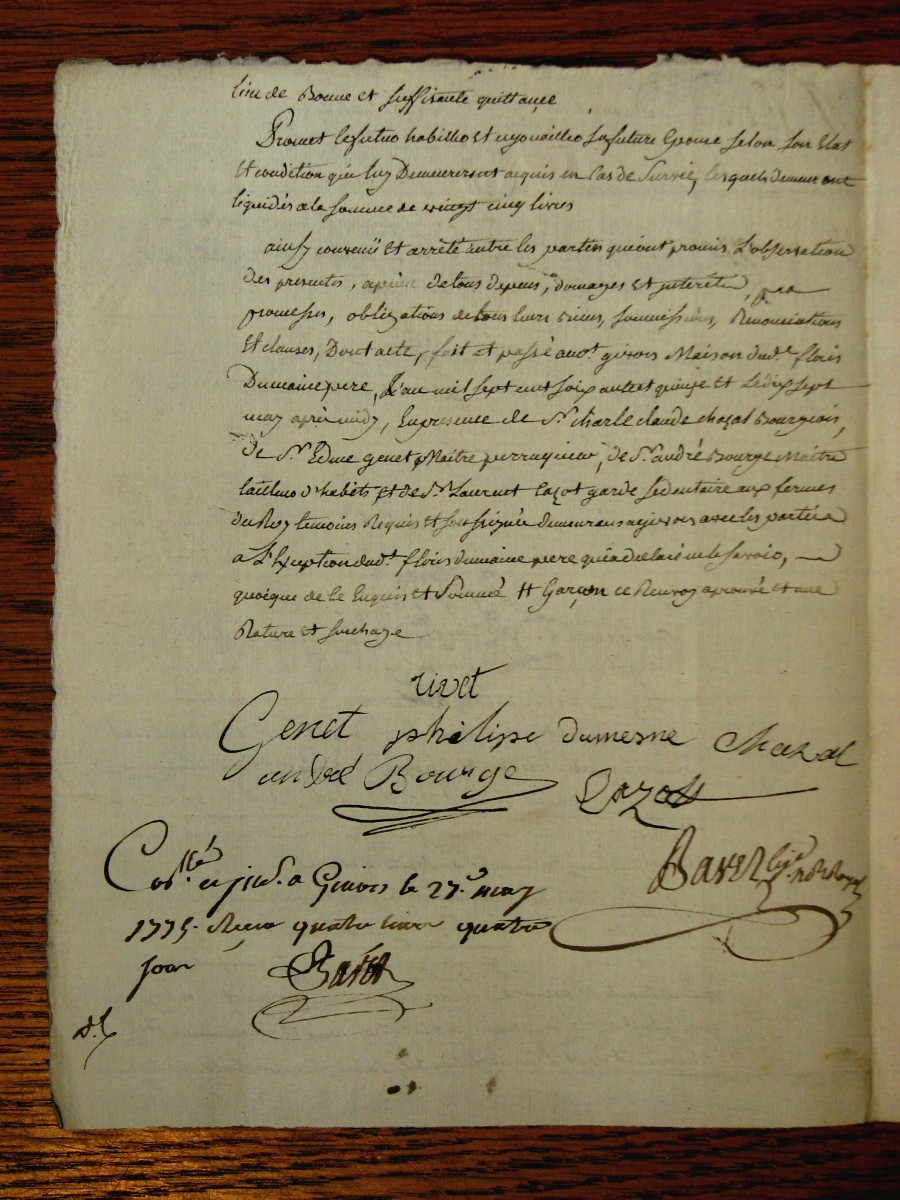 lieu de Bonne et suffisante quittance
Promet le futur habillér et enjouailler sa future Epouse selon son Etat
Et condition qui luy Demeureront acquis en Cas de Survie, lesquels demeurent
liquidés a la somme de vingt cinq livres
ainsy convenü et arrêté entre les parties qui ont promis L'observation
des presentes, a peine de tous depens, domages et interêts, par
promesses, obligations de tous leurs biens, soumissions, Renonciations
Et clauses, Dont acte, fait et passé aud.t givors Maison dud.t floris
Dumaine pere, L'an mil sept cent soixante et quinze et le dix sept
may après midy, En presence de S.r Charle claude chazal Bourgeois,
de S.r Edme genet Maitre perruquier, de S.r andré Bourge Maitre
tailleur d'habits, et de S.r Laurent cazot garde sedentaire aux fermes
du Roy temoins Requis et soussignés demeurans a givors avec les parties
a L'Exception dud.t floris dumaine pere qui a declaré ne le savoir,
quoique de ce Enquis et Sommé # Garçon ce Renvoy aprouvé et une
Rature et surcharge
rivet
Genet philipe dumesne Chazal
andré Bourge Cazot
Baret
Con.lé et jnd. a Givors le 27.e may
1775. Reçu quatre livres quatre
sous Baret